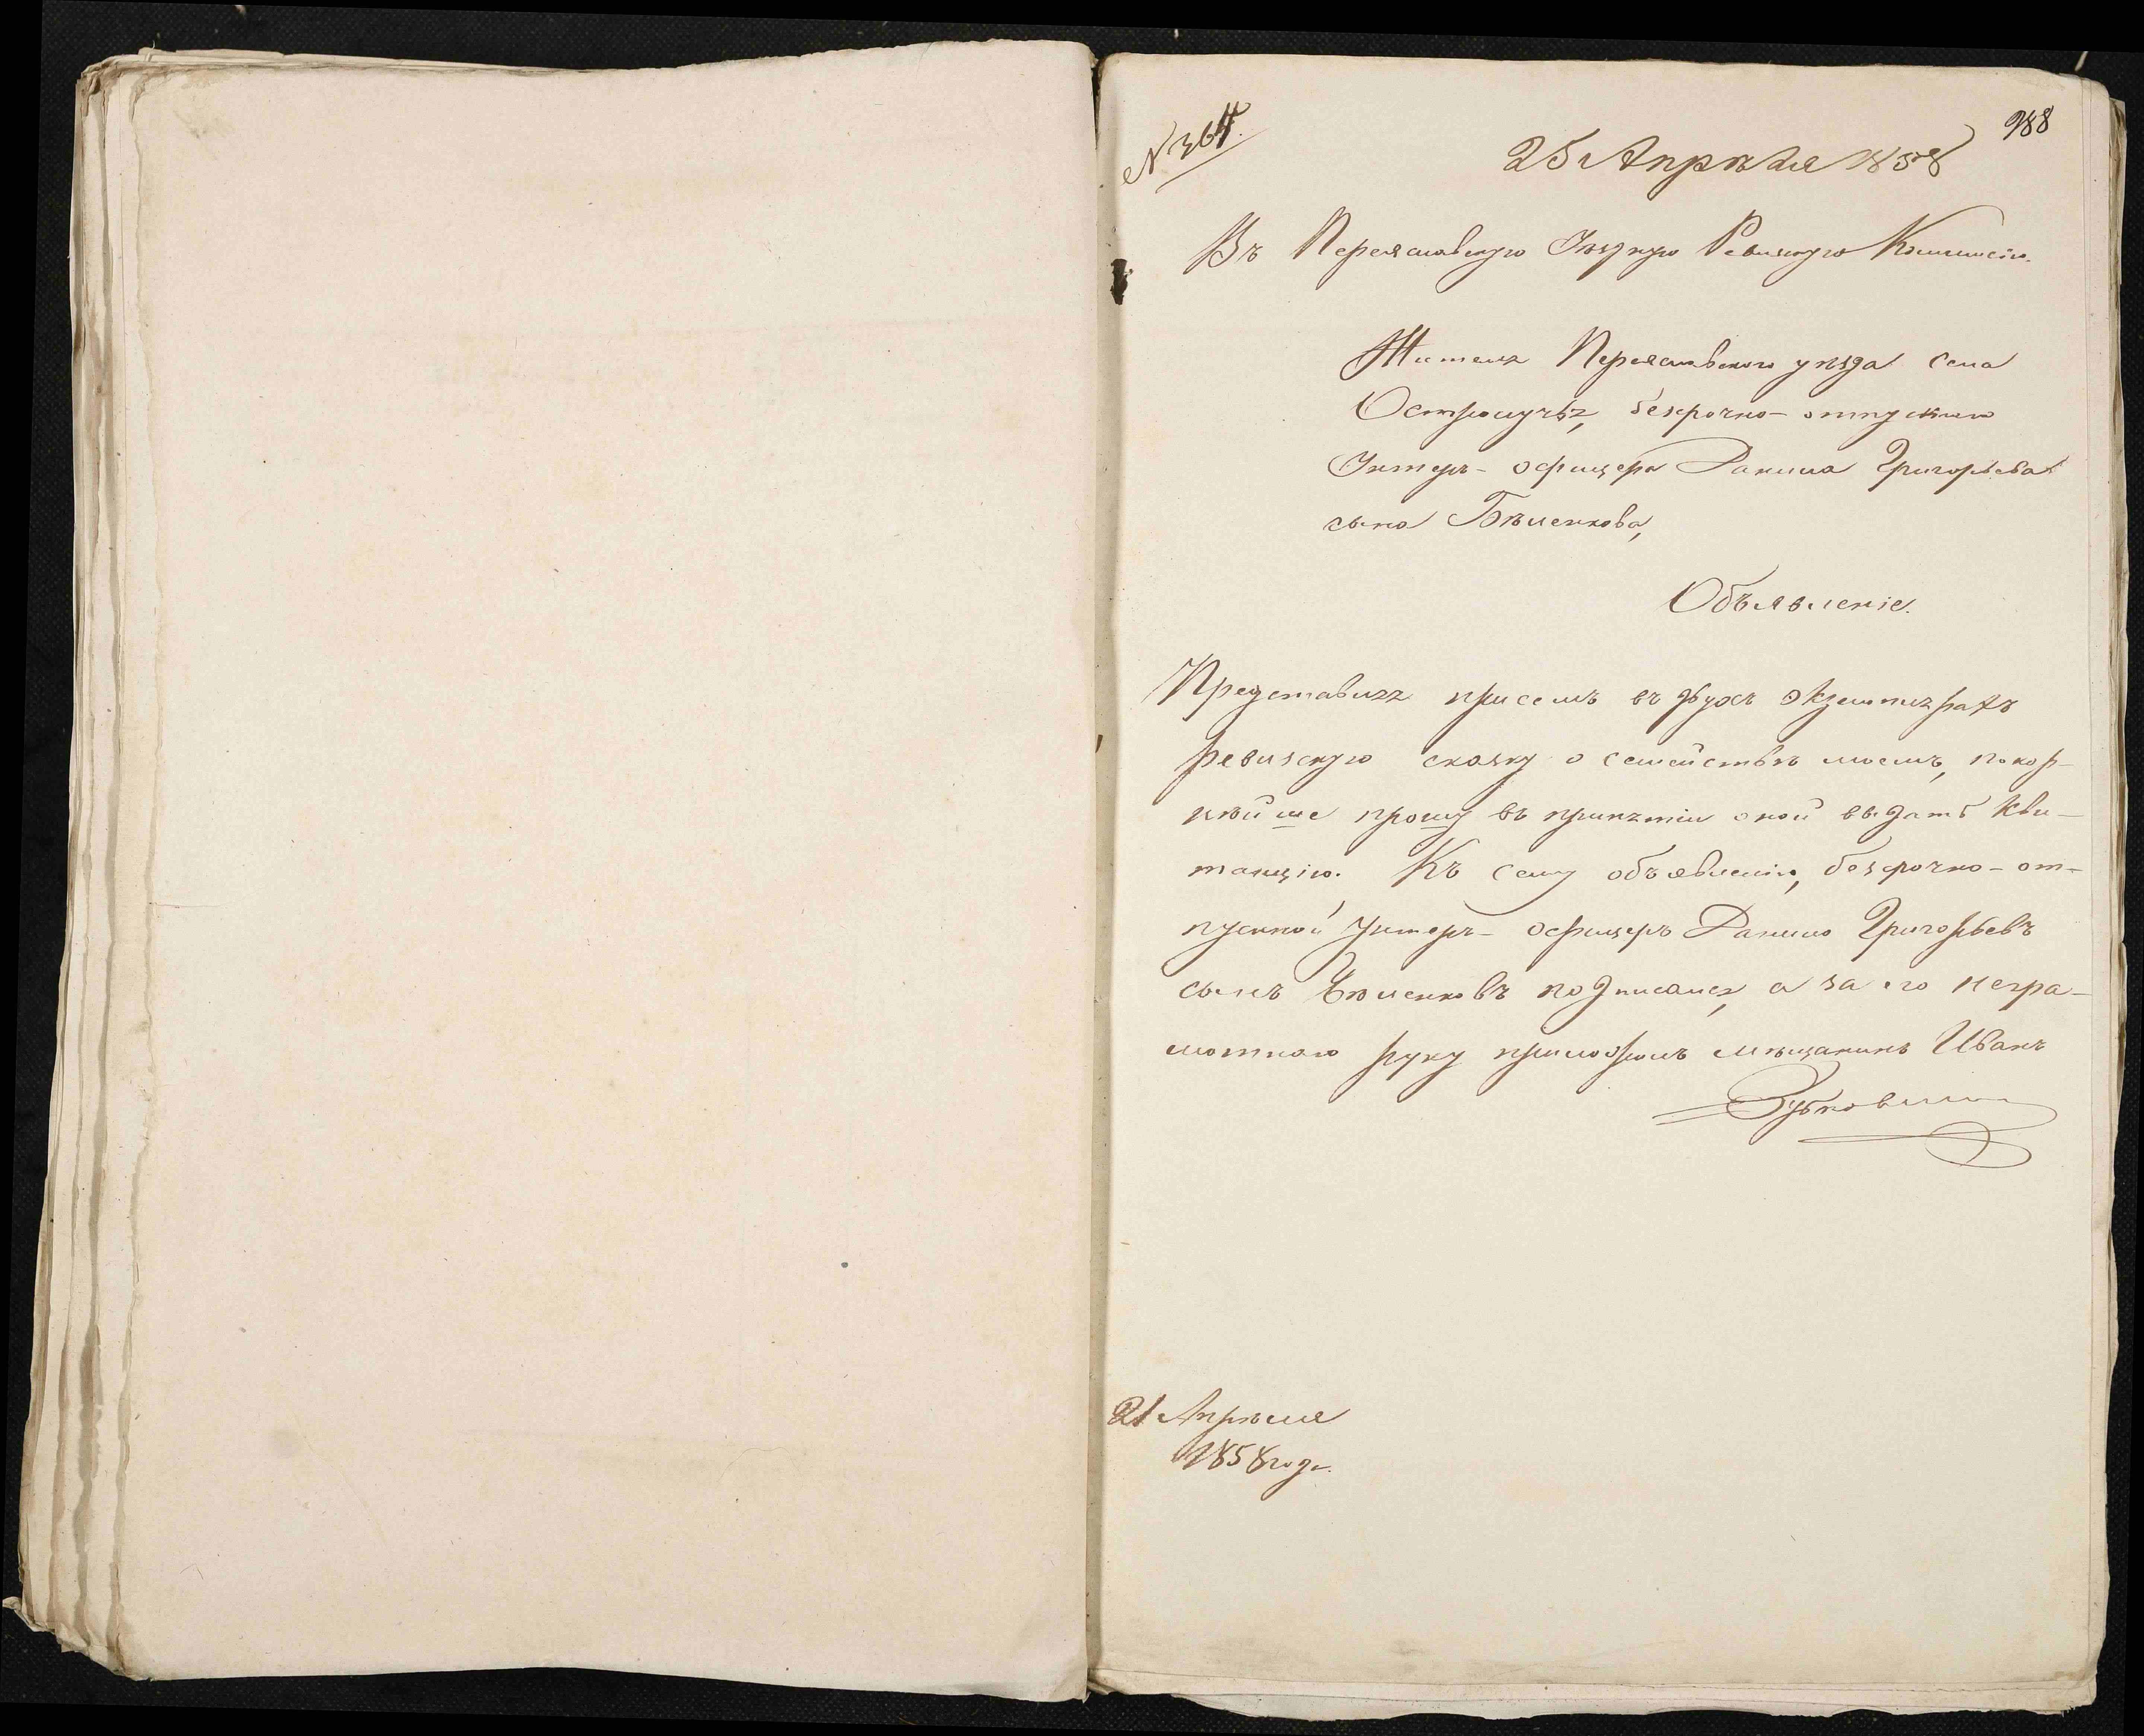 N 364.
988
25 Апрѣля 1858
Въ Переяславскую Уѣздную Ревизкую Коммисію.
Жителя Переяславского уѣзда села
Остролучья, безсрочно-отпускного
Унтеръ-офицера Данила Григорьева
сына Бѣленкова,
Объявленіе.
Представляя присемъ въ двухъ экземплярахъ
ревизскую сказку о семействѣ моемъ, покор-
нѣйше прошу въ принятіи оной выдать кви-
танцію. Къ сему объявленію, безсрочно-от-
пускной Унтеръ-офицеръ Данило Григорьевъ
сынъ Бѣленковъ подписался, а за его негра-
мотного руку приложилъ мѣщанинъ Иванъ
21 Апрѣля
1858 года.